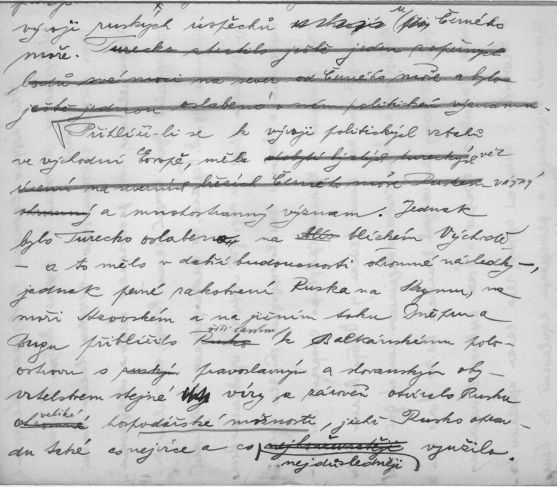 vývoji ruských úspěchů u Černého
moře. Turecko ztratilo ještě jeden z opěrných
bodů své moci na sever od Černého moře a bylo
ještě jednou oslabeno v něm politickém významu.
Přihlíží-li se k vývoji politických vztahů
ve východní Evropě, měla věc
na severních březích Černého moře Ruskem vážný
ohromný a mnohostranný význam. Jednak
bylo Turecko oslabeno na blízkém Východě
– a to mělo v další budoucnosti ohromné následky –,
jednak pevné zakotvení Ruska na Krymu, na
moři Azovském a na jižním toku Dněpru a
Bugu přiblížilo Rusko říši carskou k Balkánskému polo-
ostrovu s ruským pravoslavným a slovanským oby-
vatelstvem stejné víry a zároveň otvíralo Rusku
ohromné veliké hospodářské možnosti, jichž Rusko opra-
du také co nejvíce a co nejhorlivěji nejdůsledněji využilo.